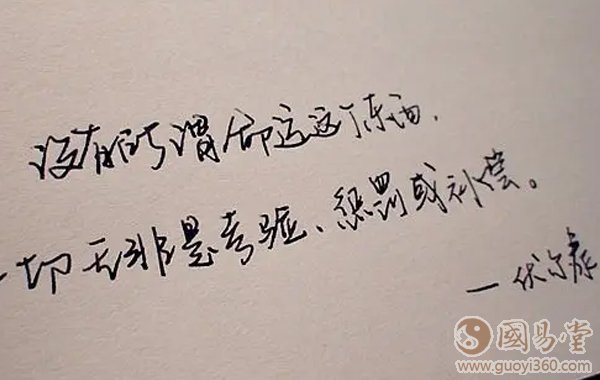 没有所谓命运这个东西，
一切无非是考验、惩罚或补偿。
—伏尔泰
國易堂
www.guoyi360.com